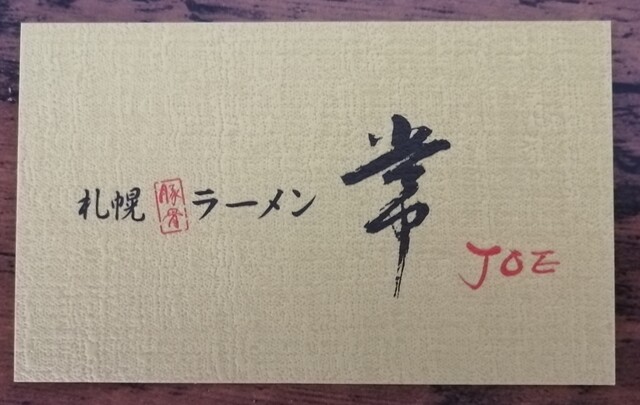 札幌 豚骨 ラーメン 常
JOE